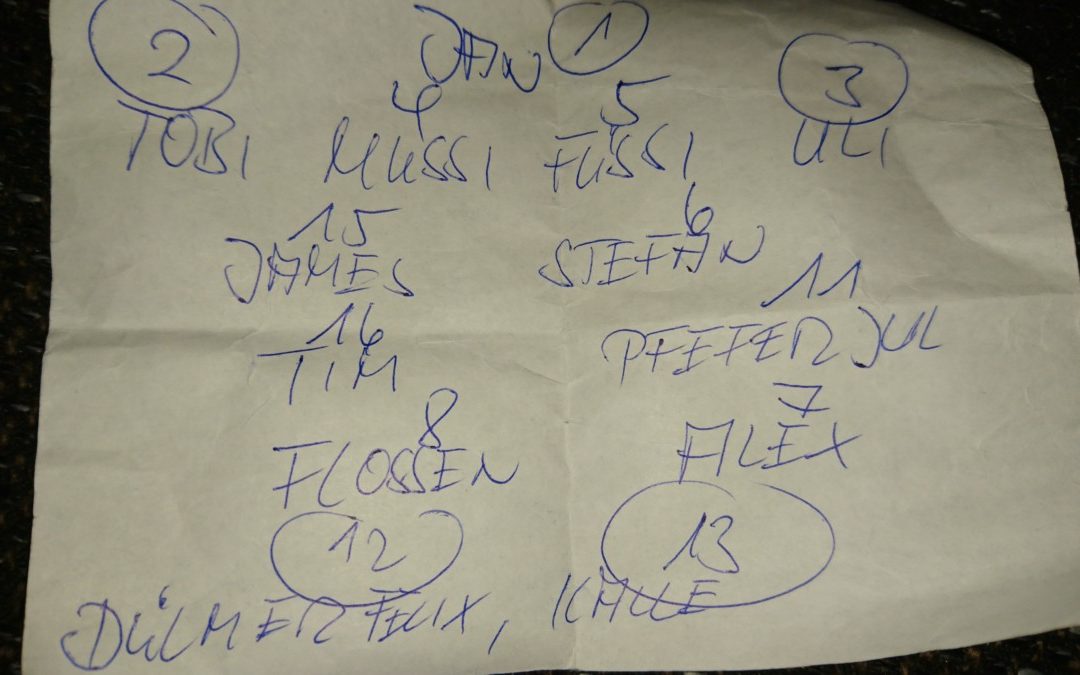 2 JAN 1 3
4 5
TOBI MÜSSI FÜSSI ULI
15 6
JAMES STEFAN
16 11
TIM PFEFER JUL
8 7
FLOSSEN ALEX
12 13
DÜLMER FELIX, KALLE